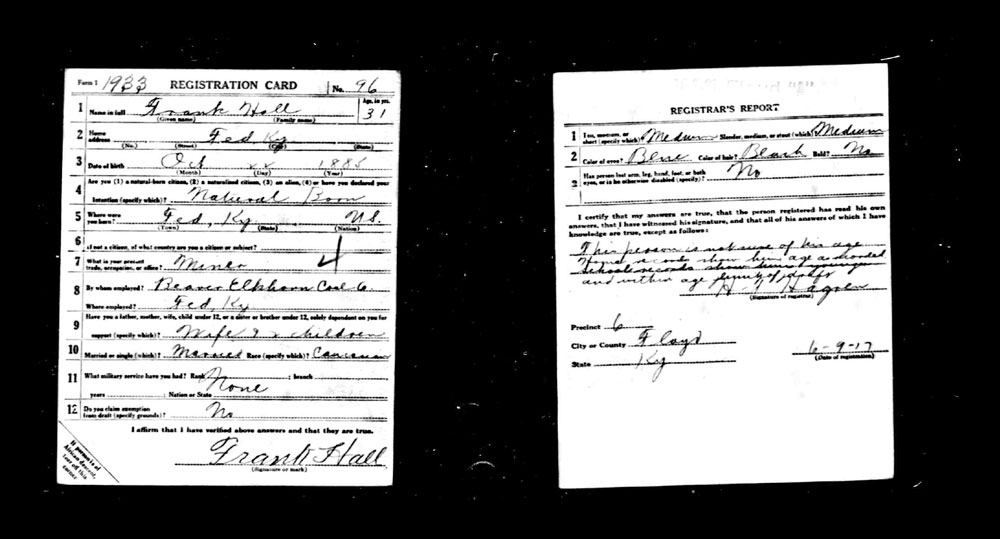 Form 1 1933 REGISTRATION CARD No. 96
1 Name in full Frank Hall Age, in yrs. 31
(Given name) (Family name)
2 Home address Fed Ky
(No.) (Street) (City) (State)
3 Date of birth Oct xx 1885
(Month) (Day) (Year)
4 Are you (1) a natural-born citizen, (2) a naturalized citizen, (3) an alien, (4) or have you declared your
intention (specify which)? Natural Born
5 Where were you born? Fed, Ky U.S.
(Town) (State) (Nation)
6 If not a citizen, of what country are you a citizen or subject?
4
7 What is your present trade, occupation, or office? Miner
8 By whom employed? Beaver Elkhorn Coal Co.
Where employed? Fed, Ky
9 Have you a father, mother, wife, child under 12, or a sister or brother under 12, solely dependent on you for
support (specify which)? Wife & children
10 Married or single (which)? Married Race (specify which)? Caucasian
11 What military service have you had? Rank None ; branch
years ; Nation or State
12 Do you claim exemption from draft (specify grounds)? No
I affirm that I have verified above answers and that they are true.
Frank Hall
(Signature or mark)
If person is of
African descent,
tear off this
corner
REGISTRAR'S REPORT
1 Tall, medium, or short (specify which)? Medium Slender, medium, or stout (which)? Medium
2 Color of eyes? Blue Color of hair? Black Bald? No
3 Has person lost arm, leg, hand, foot, or both
eyes, or is he otherwise disabled (specify)? No
I certify that my answers are true, that the person registered has read his own
answers, that I have witnessed his signature, and that all of his answers of which I have
knowledge are true, except as follows:
This person is not sure of his age
Home records show him age as recorded
School records show him younger
and within age limit of draft
(Signature of registrar)
Precinct 6
City or County Floyd
State Ky 6-9-17
(Date of registration)